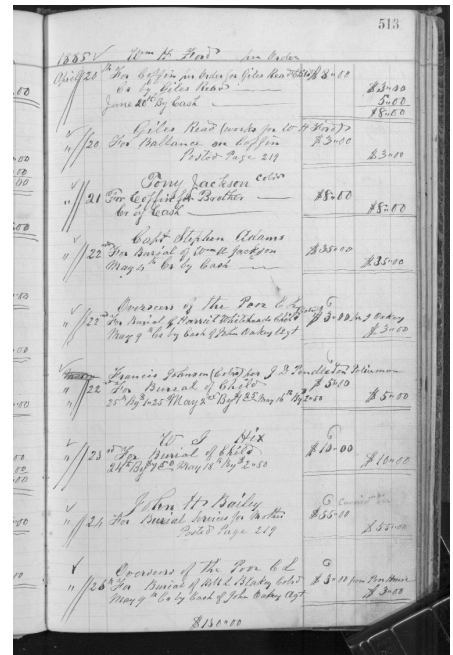 513
1885 Wm H Ford per Order
April 20th For Coffin on Order for Giles Read Cold $8-00
Cr by Giles Read $3-00
June 20th By Cash 5-00
$8-00
" 20 Giles Read (works for W H Ford)
For Ballance on Coffin $3-00
Posted Page 219 $3-00
Tony Jackson Cold
" 21 For Coffin for Brother $8-00
Cr by Cash $8-00
Capt Stephen Adams
" 22nd For Burial of Wm A Jackson $35-00
May 4th Cr by Cash $35-00
Overseers of the Poor C L
" 22nd For Burial of Harriet Whiteheads Child $3-00 per J Oakey
May 9th Cr by Cash of John Oakey Agt $3-00
Francis Johnson (Cold) for J D Pendleton Policeman
" 22nd For Burial of Child $5-00
25th By $1-25 May 2nd By $1.25 May 16th By 2-50 $5-00
W J Hix
" 23rd For Burial of Child $10-00
24th By $7-50 May 18th By $2-50 $10-00
John H Bailey
" 24 For Burial Services for Mother $55-00
Posted Page 219 $55-00
Overseers of the Poor C L
" 26th For Burial of Blakey Cold $3-00 per Poor House
May 9th Cr by Cash of John Oakey Agt $3-00
$130-00